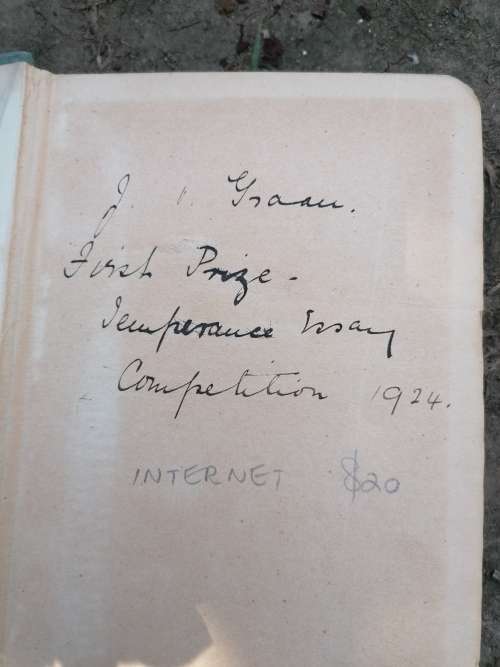 J. Graau.
First Prize -
Temperance Essay
Competition 1924.
INTERNET $20